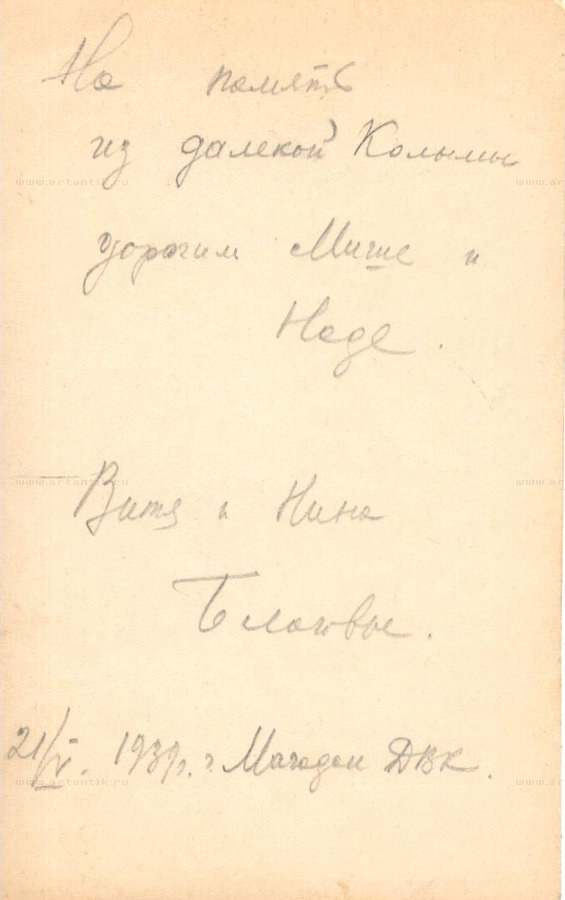 На память
из далекой Колымы
дорогим Мише и
Наде.
Витя и Нина
21/V. 1939г. г. Магадан ДВК.
www.artantik.ru